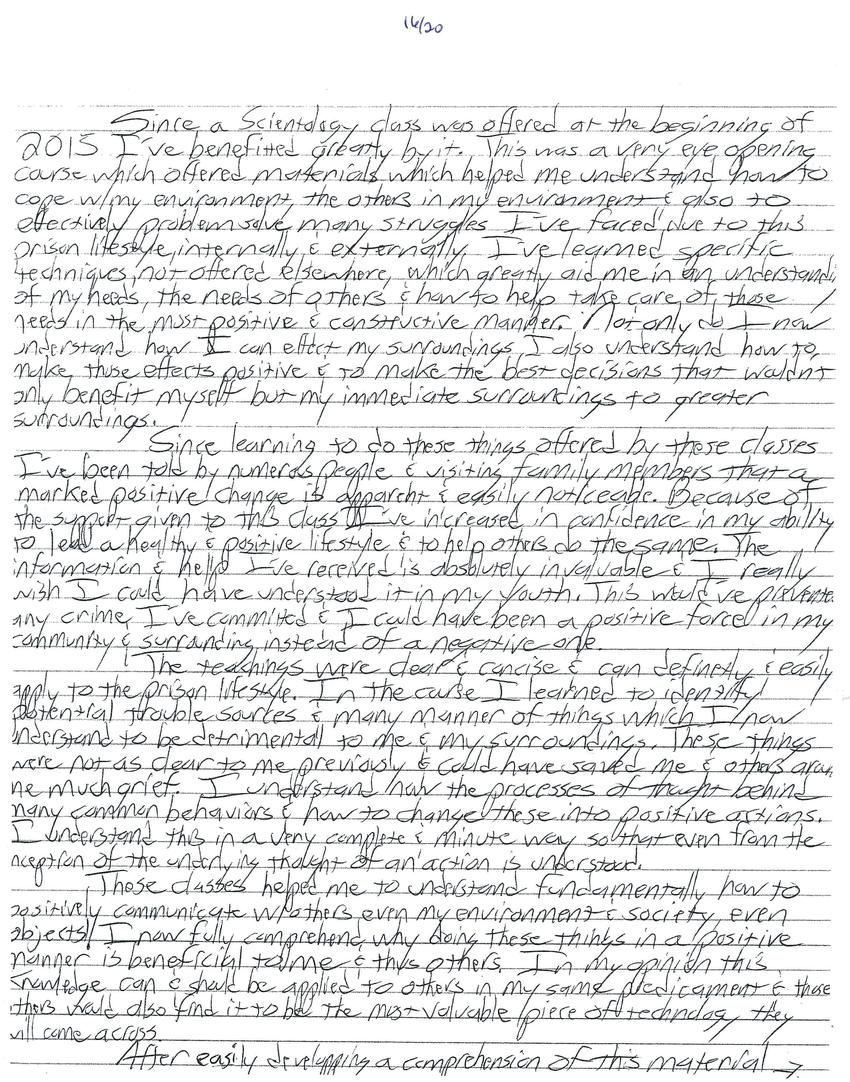 16/20
Since a Scientology class was offered at the beginning of
2015 I've benefitted greatly by it. This was a very eye opening
course which offered materials which helped me understand how to
cope w/my environment, the others in my environment & also to
effectively problem solve many struggles I've faced due to this
prison lifestyle, internally & externally. I've learned specific
techniques, not offered elsewhere, which greatly aid me in an understandi
of my needs, the needs of others & how to help take care of those
needs in the most positive & constructive manner. Not only do I now
understand how I can effect my surroundings, I also understand how to
make those effects positive & to make the best decisions that wouldnt
only benefit myself but my immediate surroundings to greater
surroundings.
Since learning to do these things offered by these classes
I've been told by numerous people & visiting family members that a
marked positive change is apparent & easily noticeable. Because of
the support given to this class I've increased in confidence in my ability
to lead a healthy & positive lifestyle & to help others do the same. The
information & help I've received is absolutely invaluable & I really
wish I could have understood it in my youth. This would've prevente
any crime I've committed & I could have been a positive force in my
community & surrounding instead of a negative one.
The teachings were clear & concise & can definetly & easily
apply to the prison lifestyle. In the curse I learned to identify
potential trouble sources & many manner of things which I now
understand to be detrimental to me & my surroundings. These things
were not as clear to me previously & could have saved me & others aroun
me much grief. I understand how the processes of thought behind
many common behaviors & how to change these into positive actions.
I understand this in a very complete & minute way so that even from the
inception of the underlying thought of an action is understood.
These classes helped me to understand fundamentally how to
positively communicate w/others even my environment & society, even
objects! I now fully comprehend why doing these things in a positive
manner is beneficial to me & thus others. In my opinion this
knowledge can & should be applied to others in my same predicament & those
others would also find it to be the most valuable piece of technology they
will come across
After easily developping a comprehension of this material →